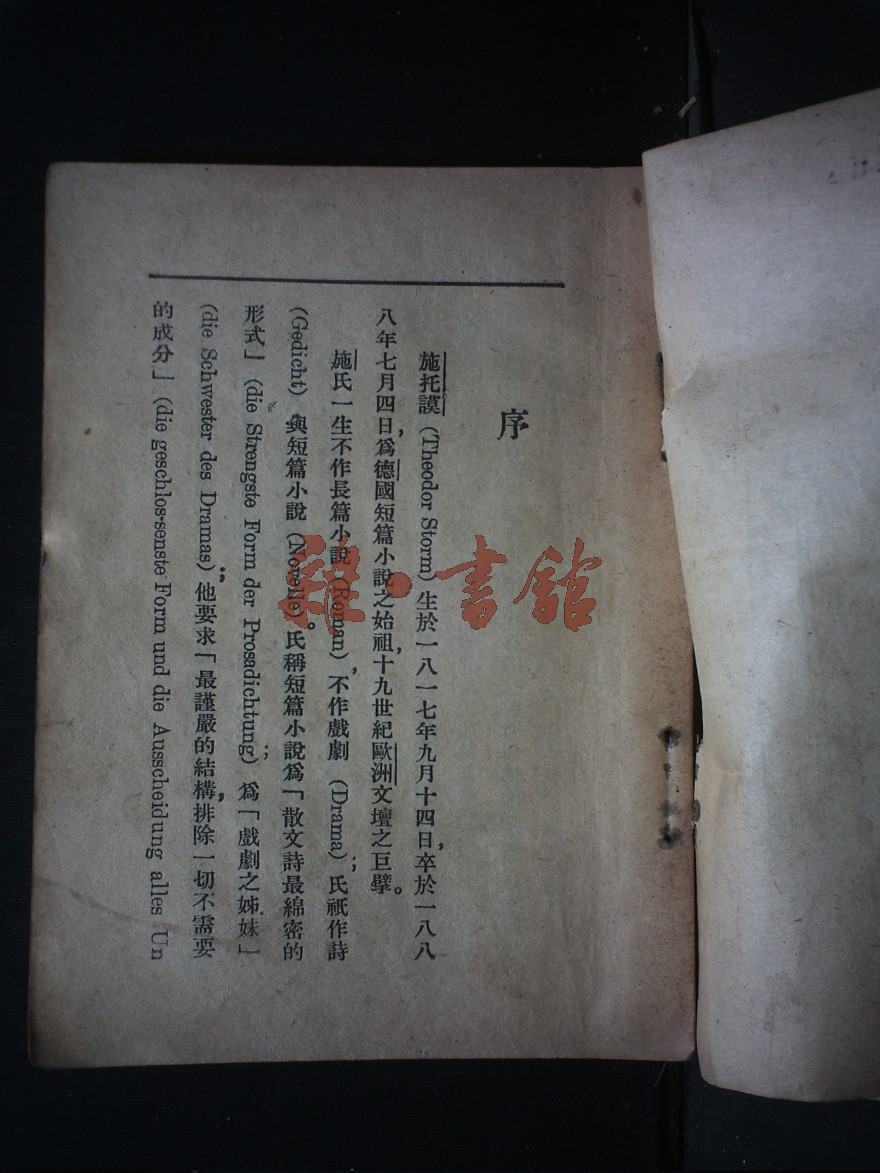 序
施托謨 (Theodor Storm) 生於一八一七年九月十四日，卒於一八八
八年七月四日，爲德國短篇小說之始祖，十九世紀歐洲文壇之巨擘。
施氏一生不作長篇小說 (Roman)，不作戲劇 (Drama)；氏祇作詩
(Gedicht) 與短篇小說 (Novelle)。氏稱短篇小說爲「散文詩最綿密的
形式」 (die Strengste Form der Prosadichtung)；爲「戲劇之姊妹」
(die Schwester des Dramas)；他要求「最謹嚴的結構，排除一切不需要
的成分」 (die geschlos-senste Form und die Ausscheidung alles Un
雜·書館